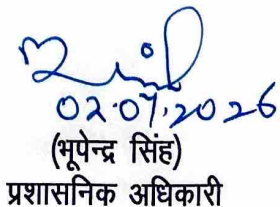 02.07.2026
(भूपेन्द्र सिंह)
प्रशासनिक अधिकारी